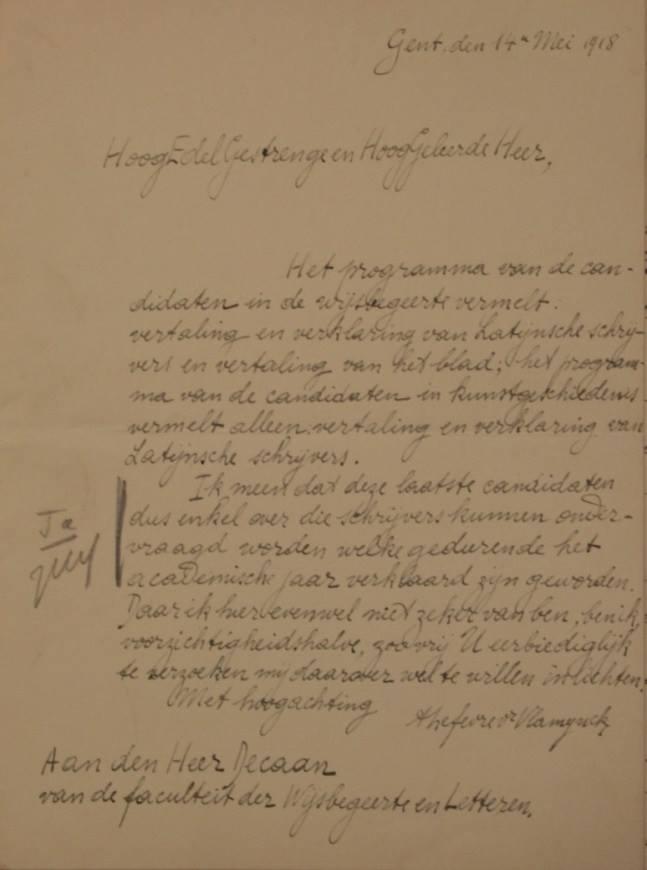 Gent, den 14n Mei 1918
HoogEdelGestrenge en HoogGeleerde Heer,
Het programma van de can-
didaten in de wijsbegeerte vermelt:
vertaling en verklaring van Latijnsche schrij-
vers en vertaling van het blad; het program-
ma van de candidaten in kunstgeschiedenis
vermelt alleen: vertaling en verklaring van
Latijnsche schrijvers.
Ik meen dat deze laatste candidaten
dus enkel over die schrijvers kunnen onder-
vraagd worden welke gedurende het
academische jaar verklaard zijn geworden.
Daar ik hier evenwel niet zeker van ben, ben ik,
voorzichtigheidshalve, zoo vrij U eerbiediglijk
te verzoeken mij daarover wel te willen inlichten.
Met hoogachting
Ja
Vlamynck
Aan den Heer Decaan
van de faculteit der Wijsbegeerte en Letteren.